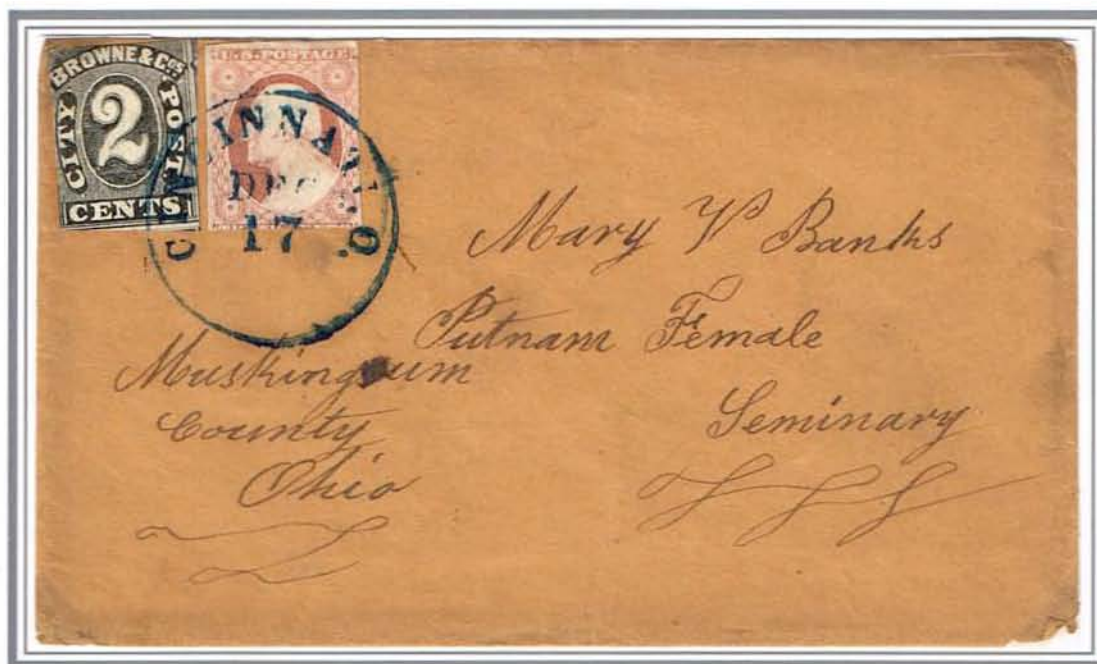 BROWNE & Cos
CITY POST.
2
CENTS
U.S. POSTAGE
CINCINNATI.O.
DEC
17
Mary V Banks
Putnam Female
Seminary
Muskingum
County
Ohio